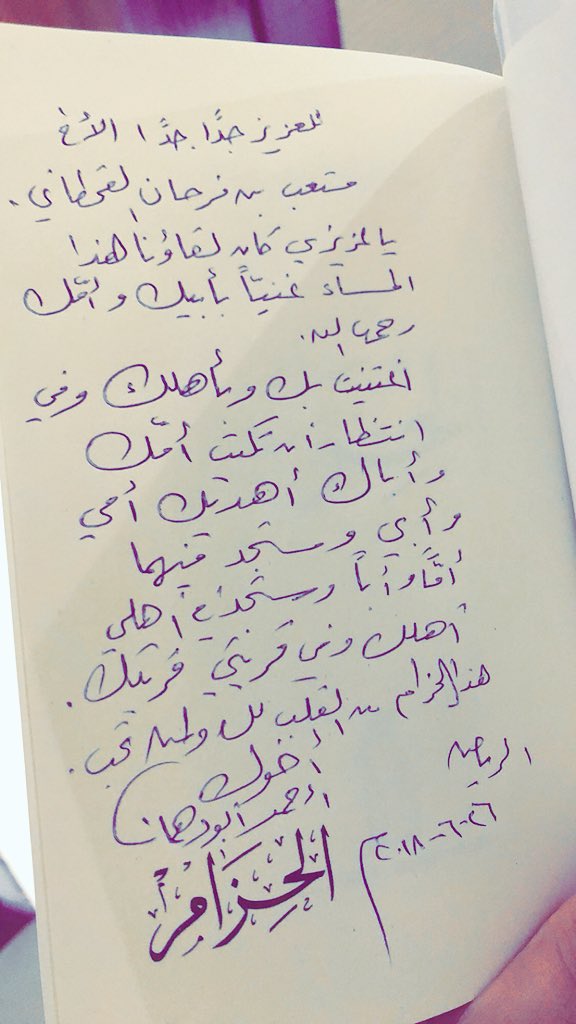 للعزيز جدًا جدًا الأخ
متعب بن فرحان القحطاني.
يا لعزيزي كان لقاؤنا هذا
المساء غنيًّا بأبيك وأمّك
رحمهما الله.
اغتنيت بك وبأهلك وفي
انتظار أن تكتب أمّك
وأباك أهديتك أمي
وأبي وستجد فيهما
أمًّا وأبًا وستجد في أهلي
أهلك وفي قريتي قريتك.
هذا الحزام من القلب لك ولمن تحب.
أخوك
أحمد أبودهمان
الرياض
٢٦-٦-٢٠١٨م
الحِزَامُ